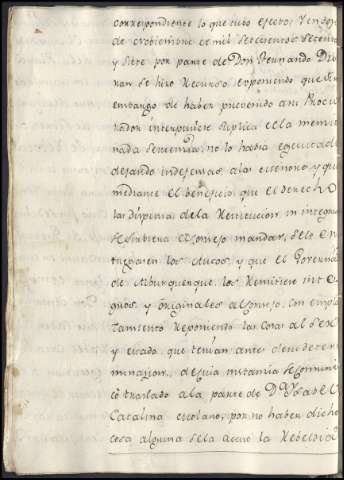 correspondiente lo que tubo efecto; Y en
de mil setecientos setenta
y siete por parte de Don Fernando
se hizo Recurso, exponiendo que sin
embargo de haber prevenido a su Procu
rador interpusiere suplica de la mencio
nada sentencia, no lo habia egecutado
dejando indefensas a las y que
mediante el beneficio, que el derecho
las dispensa de la Restitucion in integrum
se sirviera el consejo mandar, se le en
tregasen los Autos, y que el Governador
de Alburquerque, los Remitiese inte
gros, y originales al consejo, con empla
zamiento Reponiendo las cosas al ser,
y estado, que tenian antes de su deter
minazion, de cuia instancia se comuni
có traslado a la parte de D.ª Ysabel
Catalina, y por no haber dicho
cosa alguna se la acusó la Rebeldia